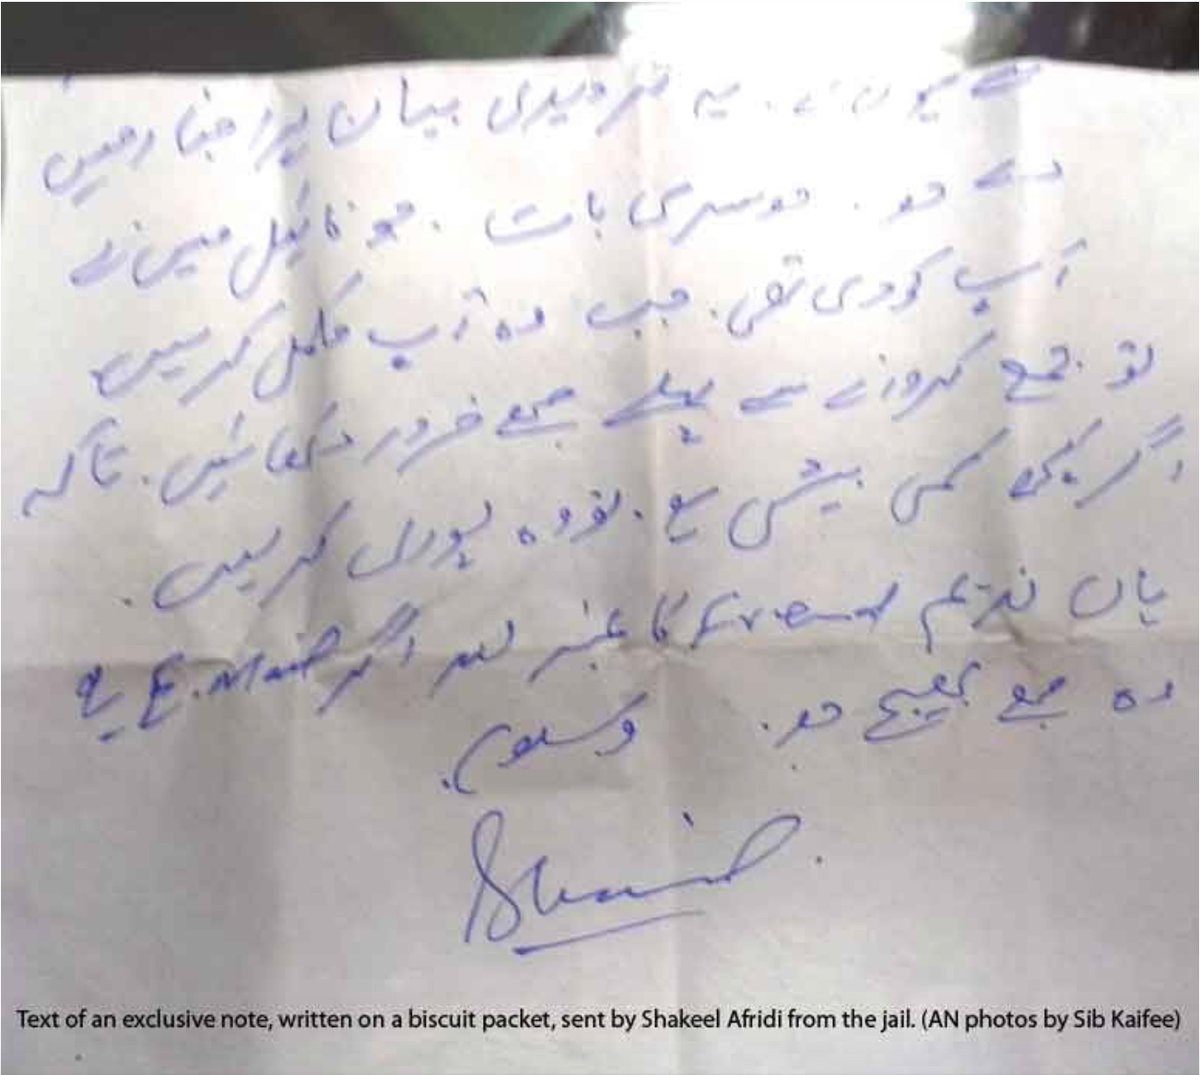 سے ہوں گے. یہ تردیدی بیان پورا اخبار میں
دے دو. دوسری بات. جو فائیل میں نے
آپ کو دی تھی. جب وہ آپ مکمل کر لیں
تو جمع کروانے سے پہلے مجھے ضرور دکھائیں. تاکہ
اگر کوئی کمی بیشی ہو. تو وہ پوری کر لیں.
ہاں ندیم Friend کا نمبر اور اگر E.Mail ہے
وہ مجھے بھیج دو. وسلام.
Text of an exclusive note, written on a biscuit packet, sent by Shakeel Afridi from the jail. (AN photos by Sib Kaifee)